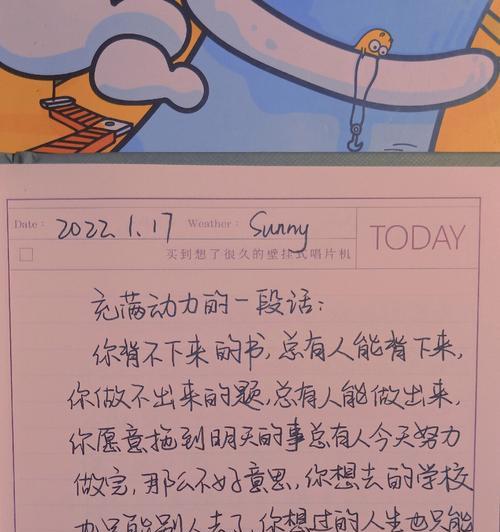 Date: 2022.1.17 Weather: Sunny
TODAY
买到想了很久的壁挂式唱片机
充满动力的一段话:
你背不下来的书,总有人能背下来,
你做不出来的题,总有人能做出来,
你愿意拖到明天的事总有人今天努力
做完,那么不好意思,你想去的学校
也只能别人去了,你想过的人生也只能